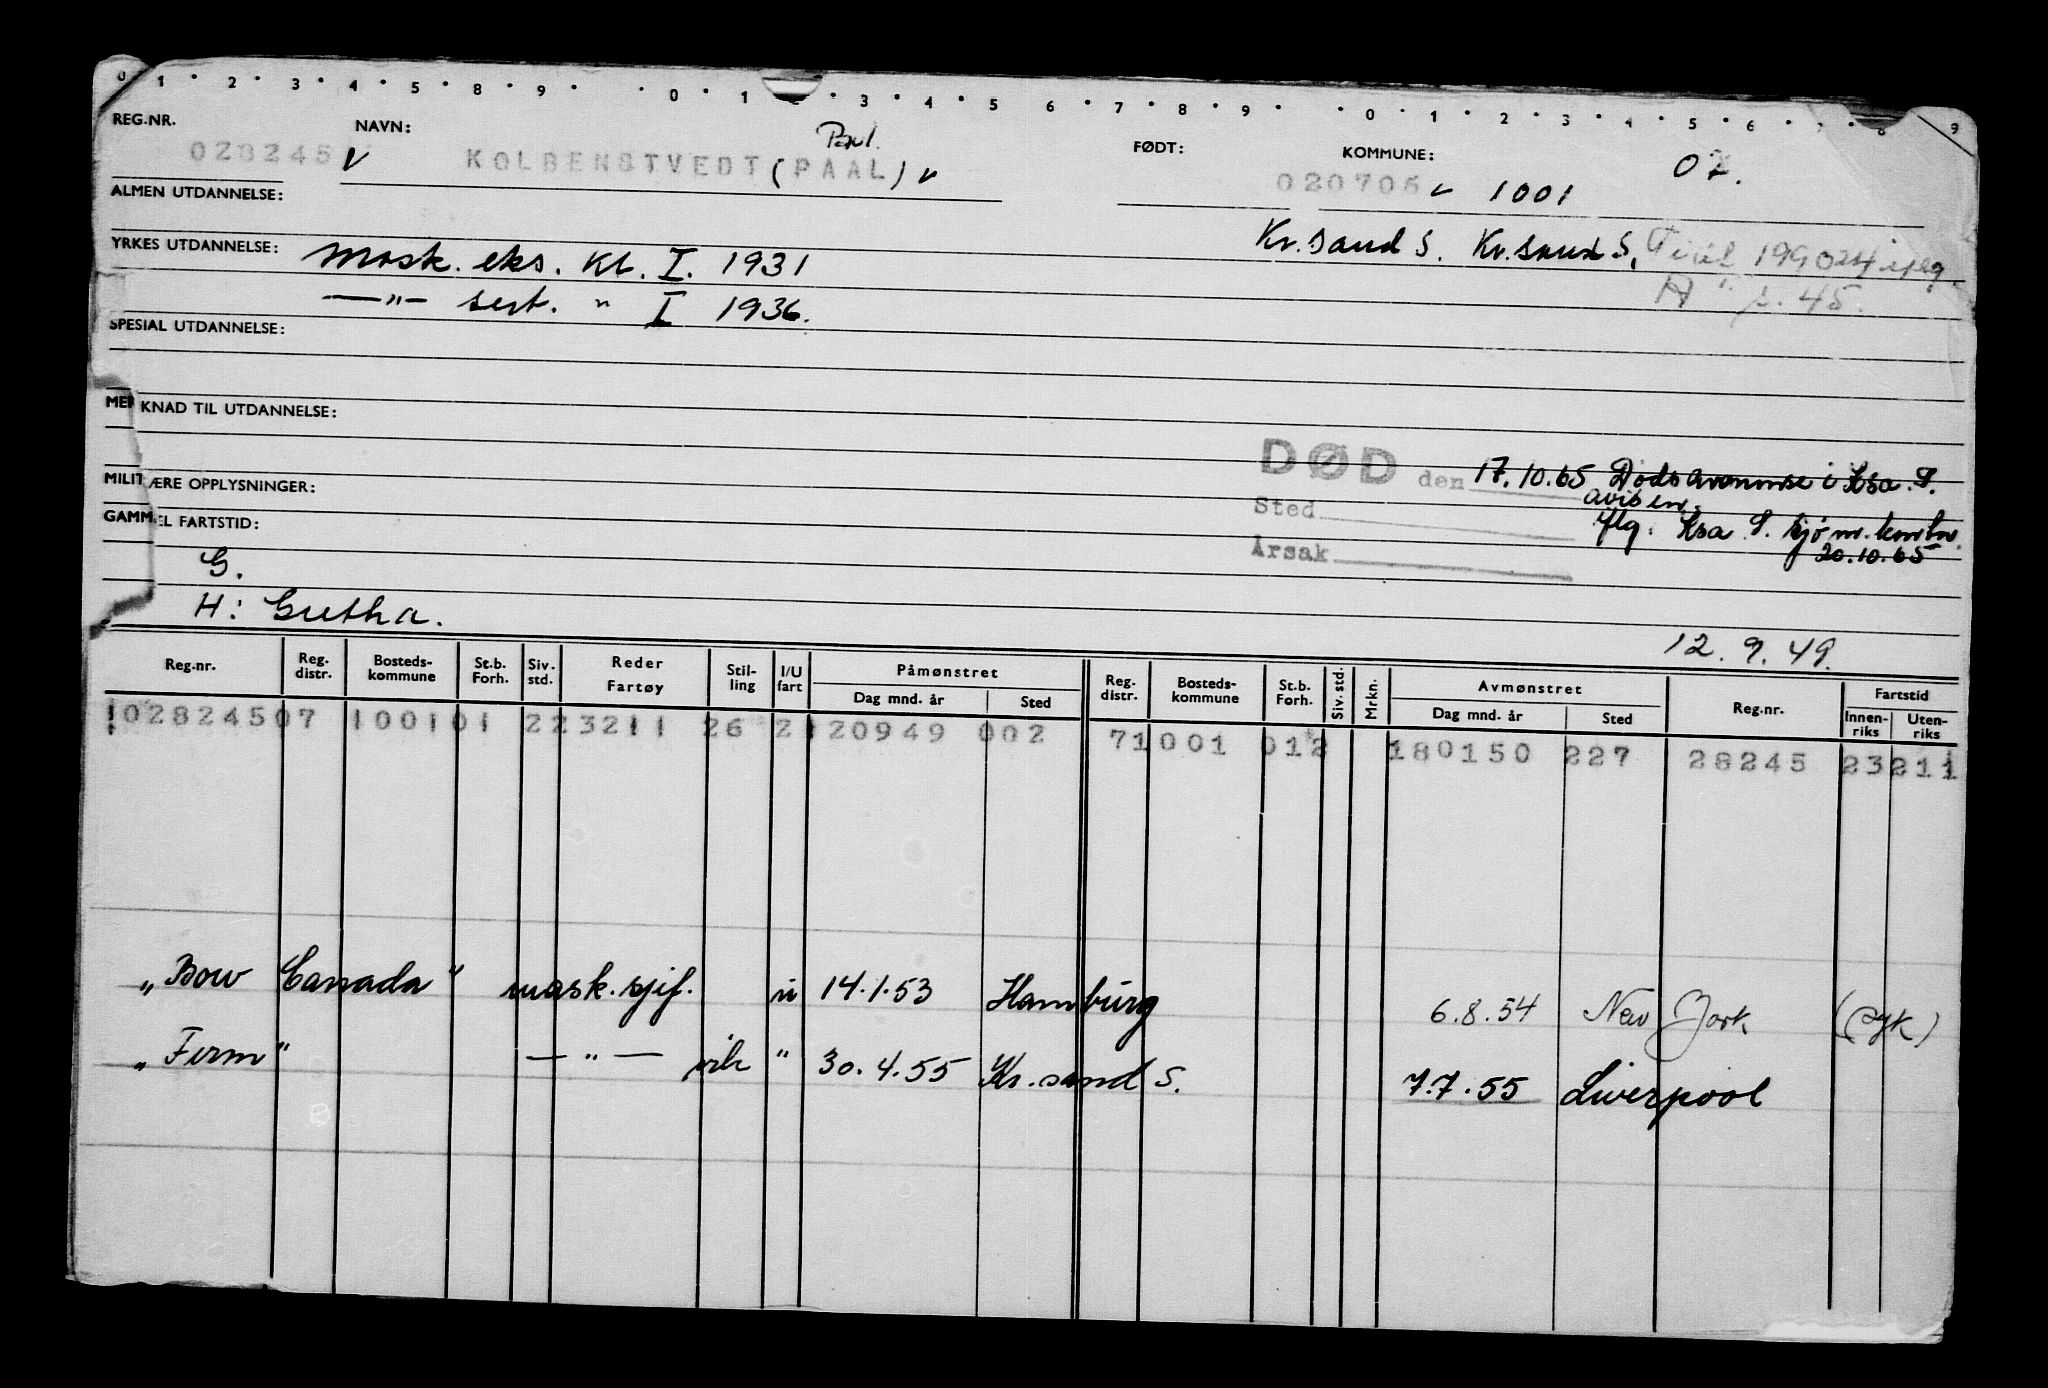 0 1 2 3 4 5 8 9 0 1 3 4 5 6 7 8 9 0 1 2 3 4 5 6 7 8 9
REG.NR. NAVN: Paul. FØDT: KOMMUNE:
028245 KOLBENSTVEDT (PAAL) 020706 1001 07.
ALMEN UTDANNELSE:
Kr.sand S. Kr.sand S.
YRKES UTDANNELSE: Mask. eks. Kl. I. 1931
—"— sert. " I 1936.
SPESIAL UTDANNELSE:
MERKNAD TIL UTDANNELSE:
DØD den 17.10.65 Dødsannonse i Ksa. S.
avisen.
MILITÆRE OPPLYSNINGER:
Sted
flg. Ksa S. sjøm.kontor
GAMMEL FARTSTID:
Årsak
20.10.65
G.
H: Gutha.
12.9.49.
Reg.nr. Reg. distr. Bosteds-kommune St.b. Forh. Siv. std. Reder Fartøy Stil-ling I/U fart Påmønstret Dag mnd. år Sted Reg. distr. Bosteds-kommune St.b. Forh. Siv. std. Mrkn. Avmønstret Dag mnd. år Sted Reg.nr. Fartstid Innen-riks Uten-riks
102824507 100101 223211 26 2120949 002 71001 012 180150 227 28245 23211
"Bow Canada" mask.sjef. u 14.1.53 Hamburg 6.8.54 New York (syk)
"Firm" —"— vik " 30.4.55 Kr.sand S. 7.7.55 Liverpool